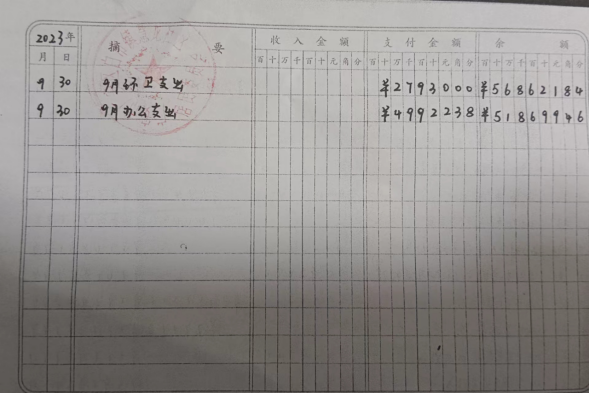 2023年 摘 要 收入金额 支付金额 余 额
月 日 百十万千百十元角分 百十万千百十元角分 百十万千百十元角分
9 30 9月环卫支出 ¥2793000 ¥56862184
9 30 9月办公支出 ¥4992238 ¥51869946